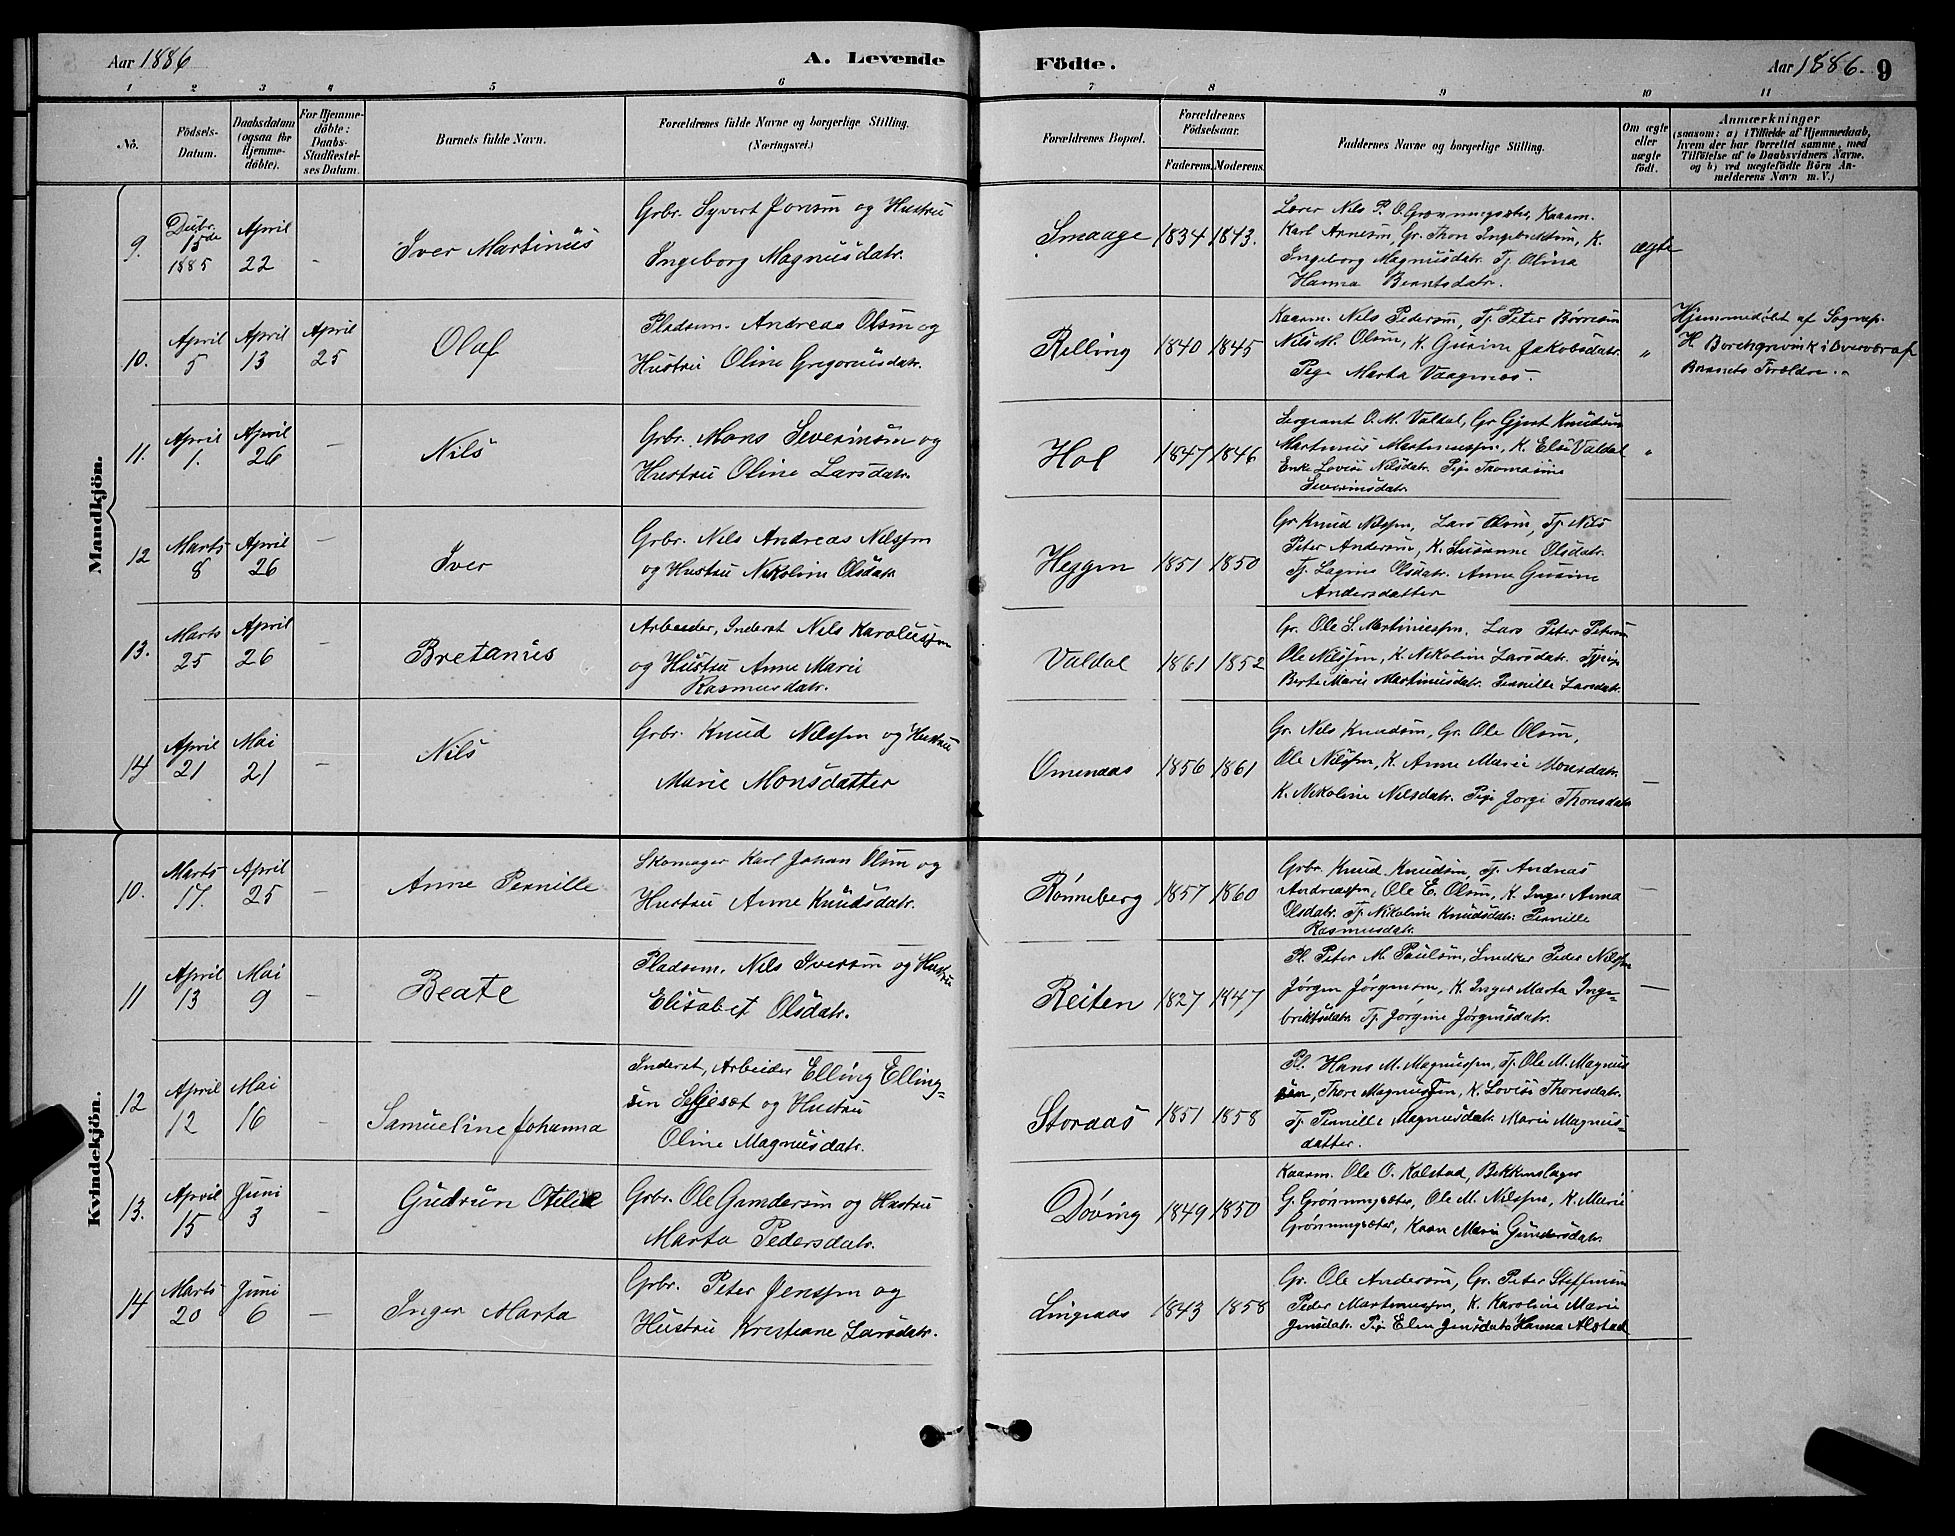 Aar 1886 A. Levende Födte. Aar 1886. 9
1 2 3 4 5 6 7 8 9 10 11
No.
Födsels-Datum.
Daabsdatum (ogsaa for Hjemme-döbte).
For Hjemme-döbte: Daabs-Stadfæstel-ses Datum.
Barnets fulde Navn.
Forældrenes fulde Navne og borgerlige Stilling.
(Næringsvei.)
Forældrenes Bopæl.
Forældrenes Födselsaar.
Faderens. Moderens.
Faddernes Navne og borgerlige Stilling.
Om ægte eller uægte födt.
Anmærkninger
(saasom: a) i Tilfælde af Hjemmedaab,
hvem der har forrettet samme, med
Tilföielse af to Daabsvidners Navne,
og b) ved uægtefödte Börn An-
melderens Navn m. V.)
Mandkjön.
9. Decbr. 15de 1885 April 22 - Iver Martinus
Grbr. Syvert Jonsen og Hustru
Ingeborg Magnusdatr.
Smaage 1834 1843.
Lærer Nils P. O. Grønningsæter, Kaarm.
Karl Arnesen, Gr. Thon Ingebriktsen, K.
Ingeborg Magnusdatr. Tj. Olina
Hanna Berntsdatr.
ægte
10. April 5 April 13 April 25 Olaf
Pladsm. Andreas Olsen og
Hustru Oline Gregoriusdatr.
Relling 1840 1845
Kaarm. Nils Pedersen, Tj. Peter Børresen
Nils M. Olsen, K. Gurine Jakobsdatr.
Pige Marta Vaagnes.
"
Hjemmedøbt af Sognep.
H. Borchgrevink i Overvær af
Barnets Forældre.
11. April 1. April 26 - Nils
Grbr. Mons Severinsen og
Hustru Oline Larsdatr.
Hol 1847 1846
Sergeant O. M. Valdal, Gr Gjert Knudsen
Martinus Martinussen, K. Else Valdal
Enke Lovise Nilsdatr. Pige Thomasine
Severinsdatr.
"
12 Marts 8 April 26 - Iver
Grbr. Nils Andreas Nilssen
og Hustru Nikoline Olsdatr.
Heggen 1851 1850
Gr Knud Nilssen, Lars Olsen, Tj. Nils
Peter Andersen, K. Susanne Olsdatr.
Tj. Lagine Olsdatr. Anne Gurine
Andersdatter
13. Marts 25 April 26 - Bretanus
Arbeider, Inderst Nils Karolussen
og Hustru Anne Marie
Rasmusdatr.
Valdal 1861 1852
Gr. Ole S. Martinussen, Lars Peter Petersen
Ole Nilssen, K. Nikoline Larsdatr.
Berte Marie Martinusdatr. Pernille Larsdatr.
14 April 21 Mai 21 - Nils
Grbr. Knud Nilssen og Hustru
Marie Monsdatter
Omenaas 1856 1861
Gr. Nils Knudsen, Gr. Ole Olsen,
Ole Nilssen, K. Anne Marie Monsdatr.
K. Nikoline Nilsdatr. Pige Jorgi Thoresdatr
-
Kvindekjön.
10. Marts 17. April 25 - Anne Pernille
Skomager Karl Johan Olsen og
Hustru Anne Knudsdatr.
Rønneberg 1857 1860
Grbr. Knud Knudsen, Tj. Andreas
Andreassen, Ole E. Olsen, K. Inger Anna
Olsdatr. Tj. Nikoline Knudsdatr. Pernille
Rasmusdatr.
-
11 April 13 Mai 9 - Beate
Pladsm. Nils Iversen og Hustru
Elisabet Olsdatr.
Reiten 1827 1847
Pl. Peter M. Paulsen, Snedker Peder Nilssen
Jørgen Jørgensen, K. Inger Marta Inge-
briktsdatr. Tj. Jørgine Jørginsdatr.
-
12 April 12 Mai 16 - Samueline Johanna
Inderst, Arbeider Elling Elling-
sen Seljeset og Hustru
Oline Magnusdatr.
Storaas 1851 1858
Pl. Hans M. Magnussen, Tj. Ole M. Magnus
sen, Thore Magnussen, K. Lovise Thoresdatr.
Tj. Pernille Magnusdatr. Marie Magnus-
datter.
13. April 15 Juni 3 - Gudrun Otilie
Grbr. Ole Gundersen og Hustru
Marta Pedersdatr.
Døving 1849 1850
Kaarm. Ole O. Kalstad, Bøkkerslager
G. Grønningsæter, Ole M. Nilssen, K. Marie
Grønningsæter, Karen Marie Gundersdatr.
14 Marts 20 Juni 6 - Inger Marta
Grbr. Peter Jenssen og
Hustru Kristiane Larsdatr.
Lingeaas 1843 1858
Gr. Ole Andersen, Gr. Peter Steffensen
Peder Martinussen, K. Karoline Marie
Jensdatr. Pige Elen Jensdatr Hanna Alstad